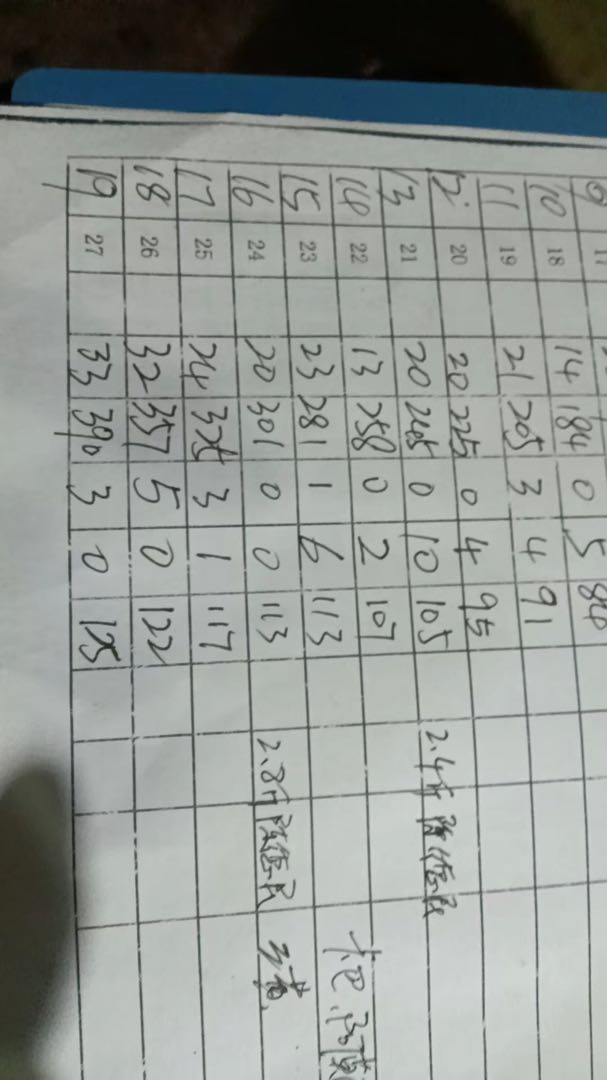 9 17
10 18 14 184 0 5 84
11 19 21 205 3 4 91
12 20 20 225 0 4 95
13 21 20 245 0 10 105 2.4斤
14 22 13 258 0 2 107
15 23 23 281 1 6 113
16 24 20 301 0 0 113 2.8斤
17 25 24 325 3 1 117
18 26 32 357 5 0 122
19 27 33 390 3 0 125